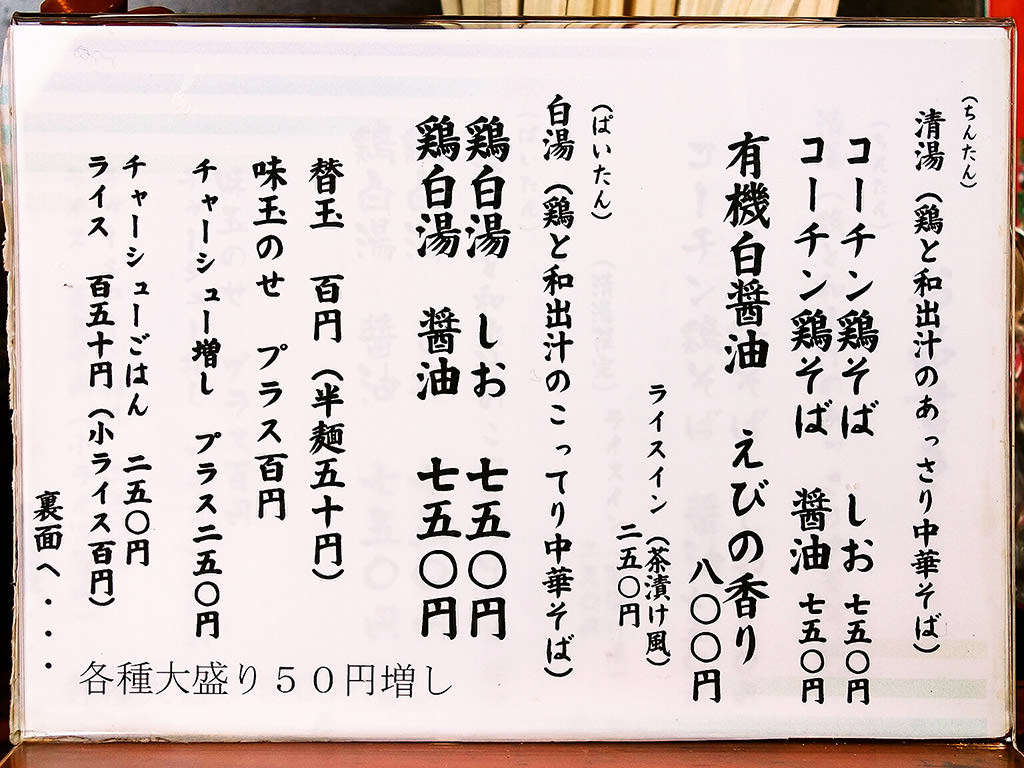 (ちんたん)
清湯(鶏と和出汁のあっさり中華そば)
コーチン鶏そば しお 七五〇円
コーチン鶏そば 醤油 七五〇円
有機白醤油 えびの香り
八〇〇円
ライスイン(茶漬け風)
二五〇円
(ぱいたん)
白湯(鶏と和出汁のこってり中華そば)
鶏白湯 しお 七五〇円
鶏白湯 醤油 七五〇円
替玉 百円(半麺五十円)
味玉のせ プラス百円
チャーシュー増し プラス二五〇円
チャーシューごはん 二五〇円
ライス 百五十円(小ライス百円)
裏面へ・・・
各種大盛り50円増し